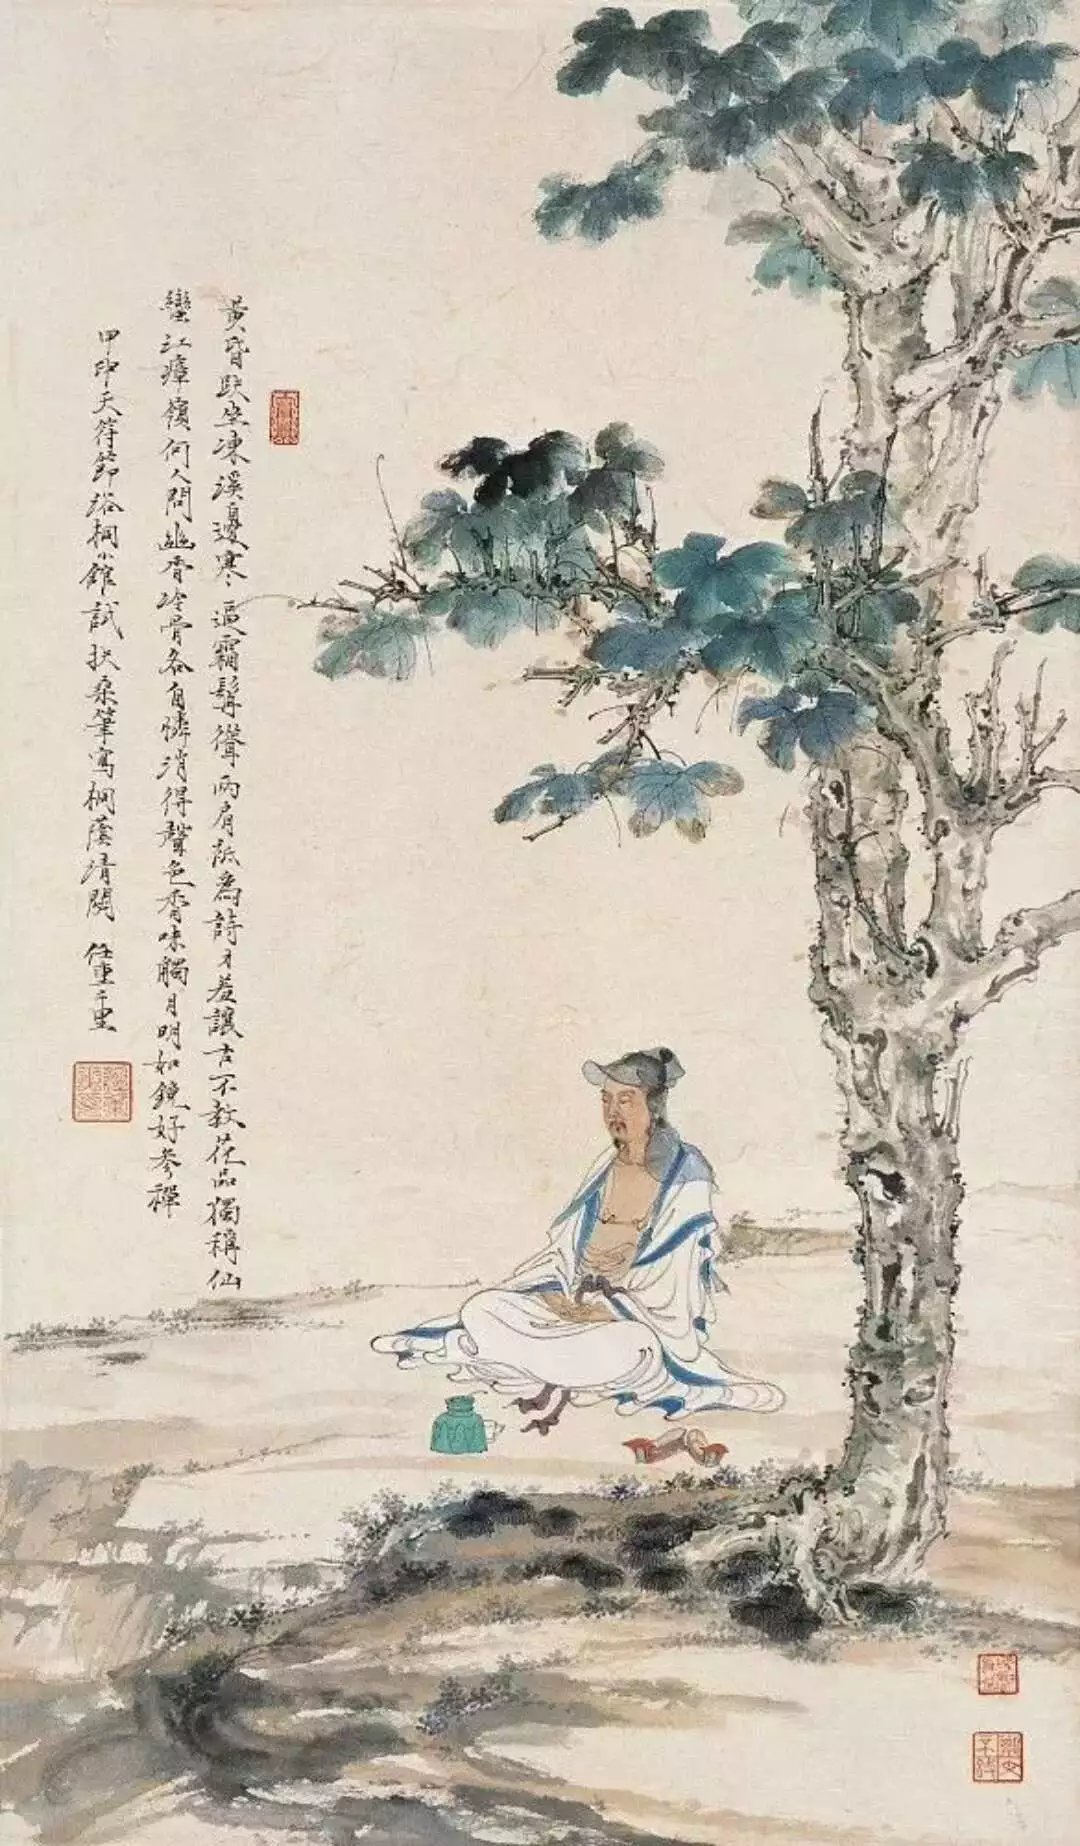 黃昏趺坐凍溪邊寒逼霜髯聳兩肩祇為詩才羞讓古不教花品獨稱仙
蠻江瘴嶺何人問幽香冷骨各自憐消得聲色香味觸月明如鏡好參禪
甲申天符節塔桐小館試扶桑筆寫桐蔭清閑 任重